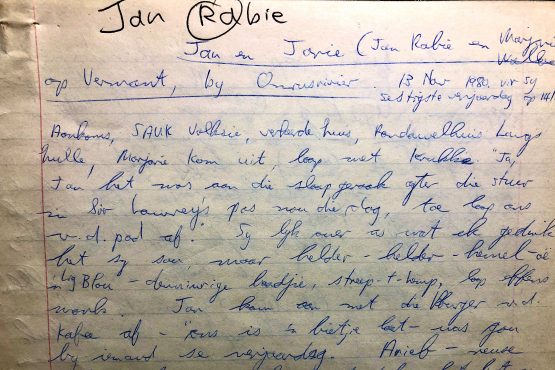 Jan Rabie
Jan en Jarie (Jan Rabie en Marjorie
Wallace
op Vermont, by Onrusrivier. 13 Nov 1980. vir sy
sestigste verjaardag op 14/
Aankoms, SAUK Volksie, verkeerde huis, Rondawelhuis langs
hulle, Marjorie kom uit, loop met krukke. "Ja,
Jan het was aan die slaap geraak agter die stuur
in Sir Lowry's pas nou die dag, toe loop ons
v.d. pad af." Sy lyk ouer as wat ek gedink
het sy sou, maar helder-helder-hemel-oë
ligblou - denim baadjie, streep-t-hemp, loop effens
mank. Jan kom aan met die Burger v.d.
Kafee af - "ons is 'n bietjie laat - was gou
by iemand se verjaardag.